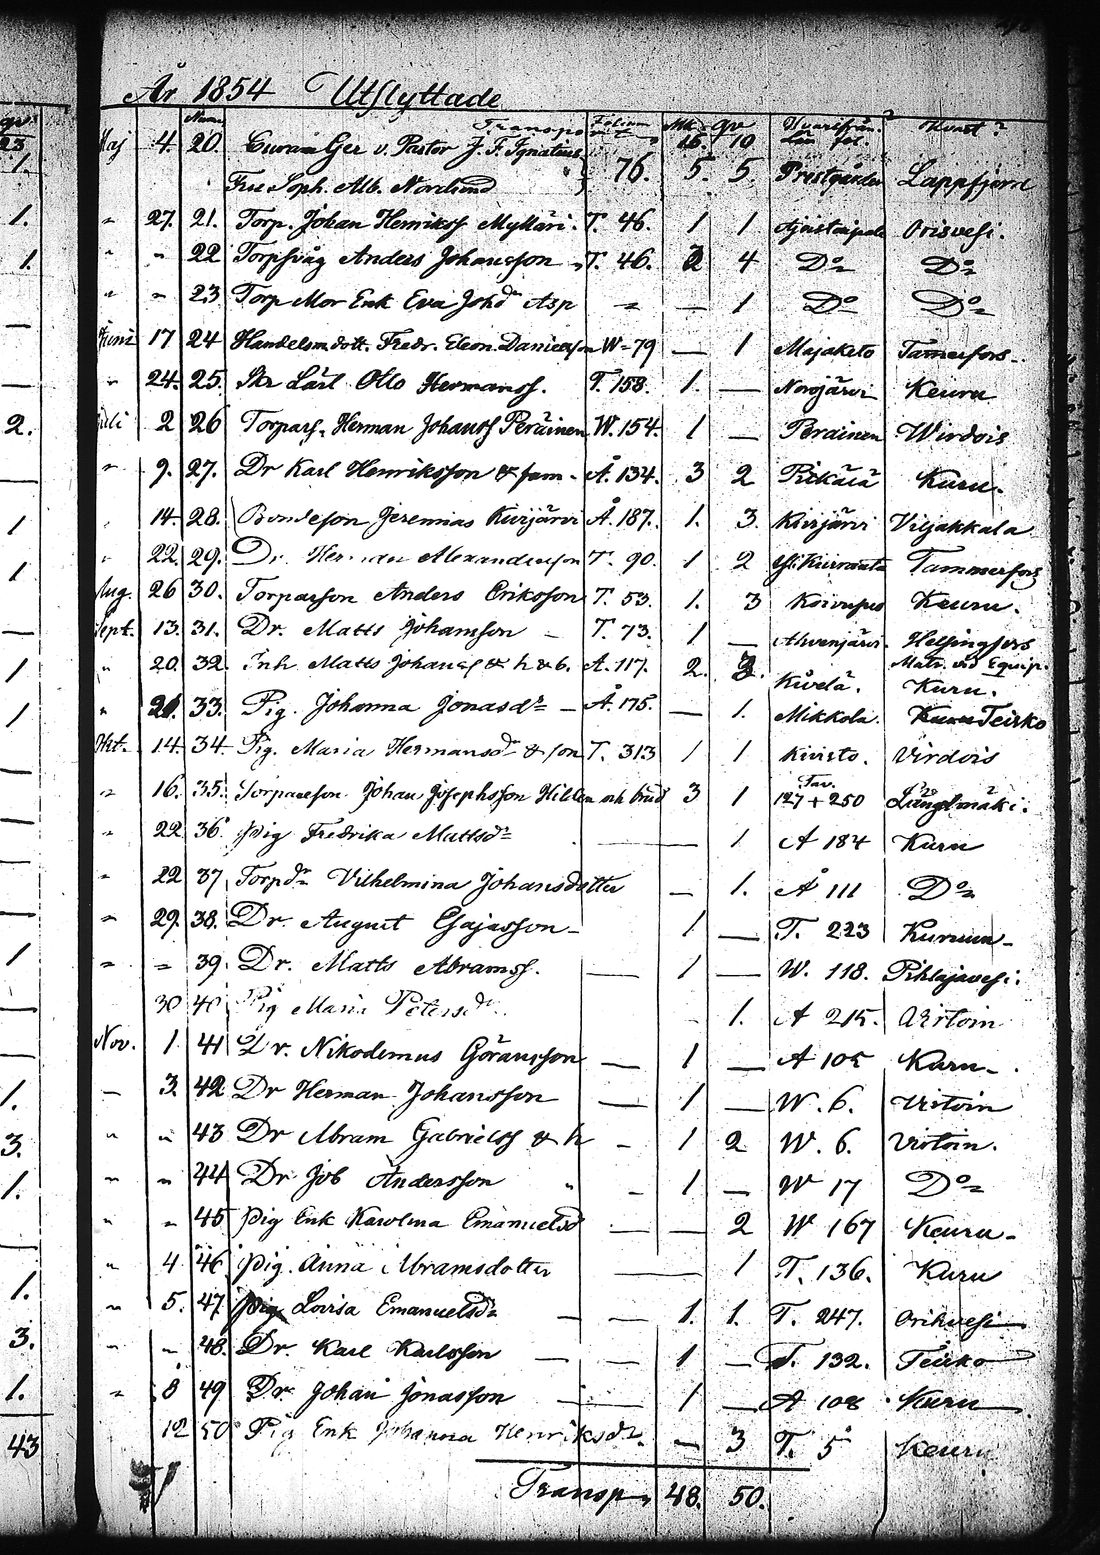 År 1854 Utflyttade
Num. Transp. Folium Mk. qv Hvarifrån? Hvart?
16. 19
Maj 4. 20. Ger v. Pastor J. F. Ignatius
Fru Soph. Alb. Norrlund 76. 5. 5. Prestgården Lappfjerd
" 27. 21. Torp. Johan Henrikss Mylläri. T. 46. 1 1 Orivesi.
" " 22 Torpsvåg Anders Johansson T. 46. 2 4 Do Do
" " 23 Torp Mor Enk Eva Johd Asp " — 1 Do Do
Juni 17 24 Handelsm dott. Fredr. Eleon. Danielson W. 79 — 1 Majaketo Tamerfors
" 24. 25. Otto Hermanss. T. 158. 1. — Norojärvi Keuru
Juli 2 26 Torpars. Herman Johanss Peräinen W. 154. 1 — Peräinen Wirdois
" 9. 27. Dr Karl Henriksson & fam. A. 134. 3 2 Kuru.
" 14. 28. Bondeson Jeremias Kivijärvi Å. 187. 1. 3. Kivijärvi Viljakkala
" 22. 29. Dr. Herman Alexandersson T. 90. 1 2 Tammerfors
Aug. 26 30. Torparson Anders Eriksson T. 53. 1. 3 Keuru.
Sept. 13. 31. Dr. Matts Johansson — T. 73. 1 — Ahvenjärvi. Helsingfors
Matr. vid Equip.
" 20. 32. Inh. Matts Johanss & h & b. A. 117. 2. 3. Kivelä. Kuru.
" 21. 33. Pig. Johanna Jonasdr — Å. 175. — 1. Mikkola. Kuru Teisko
Okt. 14. 34 Pig. Maria Hermansdr & son T. 313 1 1 Kivisto. Virdois
" 16. 35. Torpareson Johan Josephsson Hildén och brud 3 1 Tav. 127 + 250 Längelmäki.
" 22 36. Pig Fredrika Mattsdr — 1 A 184 Kuru
" 22 37 Torpdr Vilhelmina Johansdotter — 1. Å 111 Do
" 29. 38. Dr. August Esajasson — 1 — T. 223 Kuruun
" " 39. Dr. Matts Abramss. — 1 — W. 118. Pihlajavesi.
30 40 Pig Maria Petersdr 1. A 215. Virtoin
Nov. 1 41 Dr. Nikodemus Göransson — 1 — A 105 Kuru
— 3. 42 Dr Herman Johansson — 1 — W. 6. Virtoin
" " 43 Dr Abram Gabrielss & h — 1 2 W. 6. Virtoin.
" " 44 Dr Job Andersson " — 1 — W 17 Do
" " 45 Pig Enk Karolina Emanuelsd — — 2 W 167 Keuru
4 46 Pig. Anna Abramsdotter — 1 T. 136. Kuru
" 5. 47 Pig Lovisa Emanuelsdr — — 1. 1. T. 247. Orihvesi
" " 48. Dr. Karl Karlsson — — 1 — T. 132. Teisko
" 8 49 Dr. Johan Jonasson — 1 — A 108 Kuru
12 50 Pig Enk Johanna Henriksdr. — 3 T. 5 Keuru
Transp. 48. 50.
qv.
23
1.
1.
1.
—
—
2.
—
1
1
—
1
1
—
—
—
—
1
—
—
1.
3.
1.
—
1.
3.
1.
43